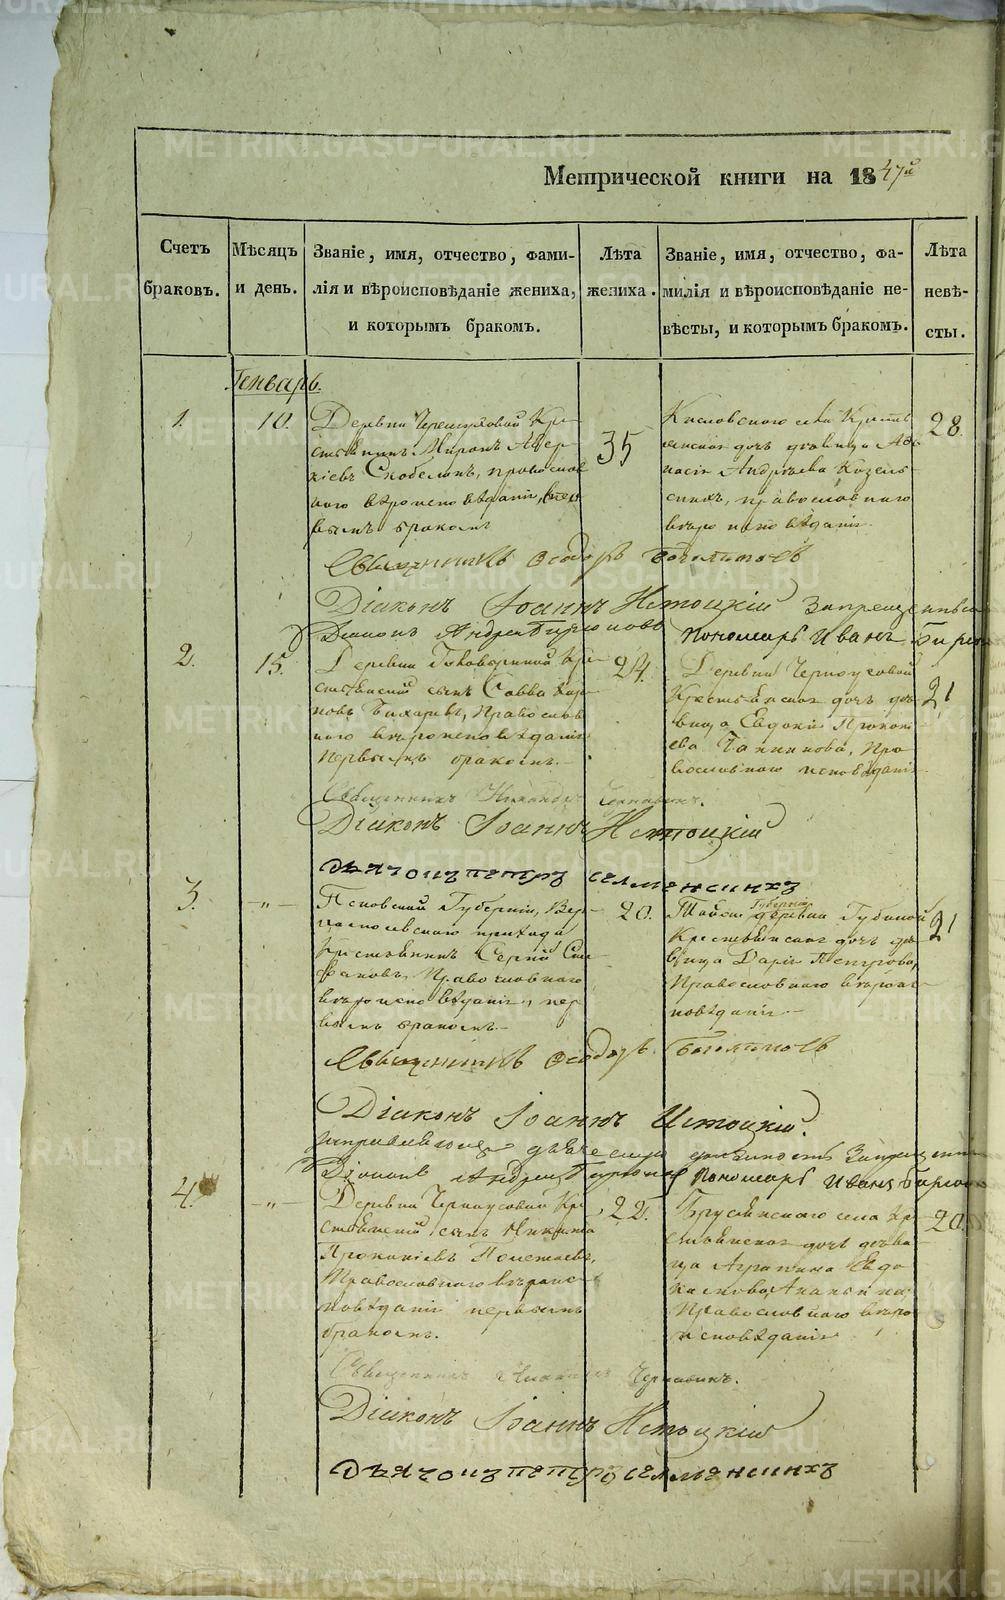 Метрической книги на 1847й
Счетъ браковъ.
Мѣсяцъ и день.
Званіе, имя, отчество, фами-
лія и вѣроисповѣданіе жениха,
и которымъ бракомъ.
Лѣта жениха.
Званіе, имя, отчество, фа-
милія и вѣроисповѣданіе не-
вѣсты, и которымъ бракомъ.
Лѣта невѣ-
сты.
Генварь.
1. 10.
Деревни Кре-
стьянинъ Миронъ Авер-
кіевъ Скобелинъ, православ
наго вѣроисповѣданія, пер
вымъ бракомъ
35
Кисловского села Кресть
янская дочь дѣвица
Андреева Козель-
скихъ, православнаго
вѣроисповѣданія.
28.
Священникъ Ѳеодоръ Боголюбовъ
Діаконъ Іоаннъ Истоцкій Запрещенный
Діаконъ Андрей Пономарь Иванъ
2. 15.
Деревни Кре-
стьянскій сынъ Савва Кар-
повъ Бахаревъ, Православ
наго вѣроисповѣданія
первымъ бракомъ.
24.
Деревни Черноусовой
Крестьянская дочь дѣ-
вица Евдокія Прокоп
ева Православнаго исповѣданія
21
Священникъ Чернавинъ.
Діаконъ Іоаннъ Истоцкій
дьячокъ петръ селменскихъ
3. -„-
Псковской Губерніи,
прихода
крестьянинъ Сергій Сте
фановъ, Православнаго
вѣроисповѣданія, пер
вымъ бракомъ.-
20.
Той же Губерніи деревни Губиной
Крестьянская дочь дѣ-
вица Дарія Петрова,
Православнаго вѣроис-
повѣданія.-
21
Священникъ Ѳеодоръ Боголюбовъ
Діаконъ Іоаннъ Истоцкій.
исправляющій дьяческую должность Запрещенный
Діаконъ Андрей Пономарь Иванъ
4. -„-
Деревни Черноусовой Кре
стьянскій сынъ Никита
Прокопіевъ
Православнаго вѣроис-
повѣданія первымъ
бракомъ.
22.
Брусянского села Кре
стьянская дочь дѣви-
ца Агрипина Евдо
кимова
Православнаго вѣро
исповѣданія
20.
Священникъ Чернавинъ.
Діаконъ Іоаннъ Истоцкій
дьячокъ петръ селменскихъ
METRIKI.GASO-URAL.RU